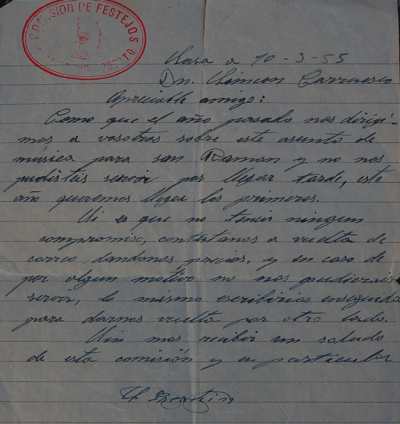 COMISION DE FESTEJOS
a 10-3-55
Dn. Simeon
Apreciable amigo:
Como que el año pasado nos dirigi-
mos a vosotros sobre este asunto de
música para san Ramon y no nos
pudistis servir por llegar tarde, este
año queremos llegar los primeros.
Si es que no teneis ningun
compromiso, contestanos a vuelta de
correo dandonos precios, y en caso de
por algun motivo no nos pudierais
servir, lo mismo escribirias enseguida
para darnos vuelta por otro lado.
Sin mas recibir un saludo
de esta comisión y en particular